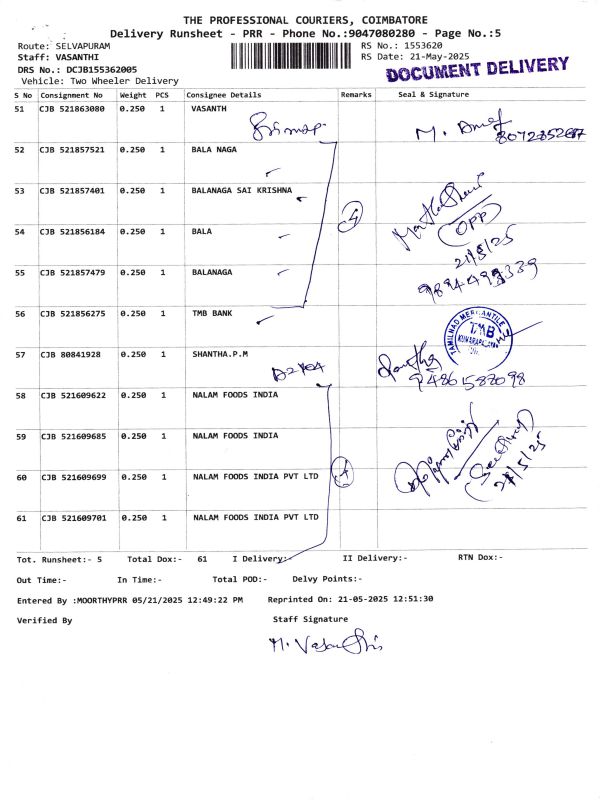 THE PROFESSIONAL COURIERS, COIMBATORE
Delivery Runsheet - PRR - Phone No.:9047080280 - Page No.:5
Route: SELVAPURAM RS No.: 1553620
Staff: VASANTHI RS Date: 21-May-2025
DRS No.: DCJB155362005 DOCUMENT DELIVERY
Vehicle: Two Wheeler Delivery
S No Consignment No Weight PCS Consignee Details Remarks Seal & Signature
51 CJB 521863080 0.250 1 VASANTH
52 CJB 521857521 0.250 1 BALA NAGA
53 CJB 521857401 0.250 1 BALANAGA SAI KRISHNA
4
54 CJB 521856184 0.250 1 BALA
(OPP)
21/5/25
55 CJB 521857479 0.250 1 BALANAGA
56 CJB 521856275 0.250 1 TMB BANK
TAMILNAD MERCANTILE
TMB
57 CJB 80841928 0.250 1 SHANTHA.P.M
9486158 8098
58 CJB 521609622 0.250 1 NALAM FOODS INDIA
59 CJB 521609685 0.250 1 NALAM FOODS INDIA
60 CJB 521609699 0.250 1 NALAM FOODS INDIA PVT LTD
4
61 CJB 521609701 0.250 1 NALAM FOODS INDIA PVT LTD
Tot. Runsheet:- 5 Total Dox:- 61 I Delivery:- II Delivery:- RTN Dox:-
Out Time:- In Time:- Total POD:- Delvy Points:-
Entered By :MOORTHYPRR 05/21/2025 12:49:22 PM Reprinted On: 21-05-2025 12:51:30
Verified By Staff Signature